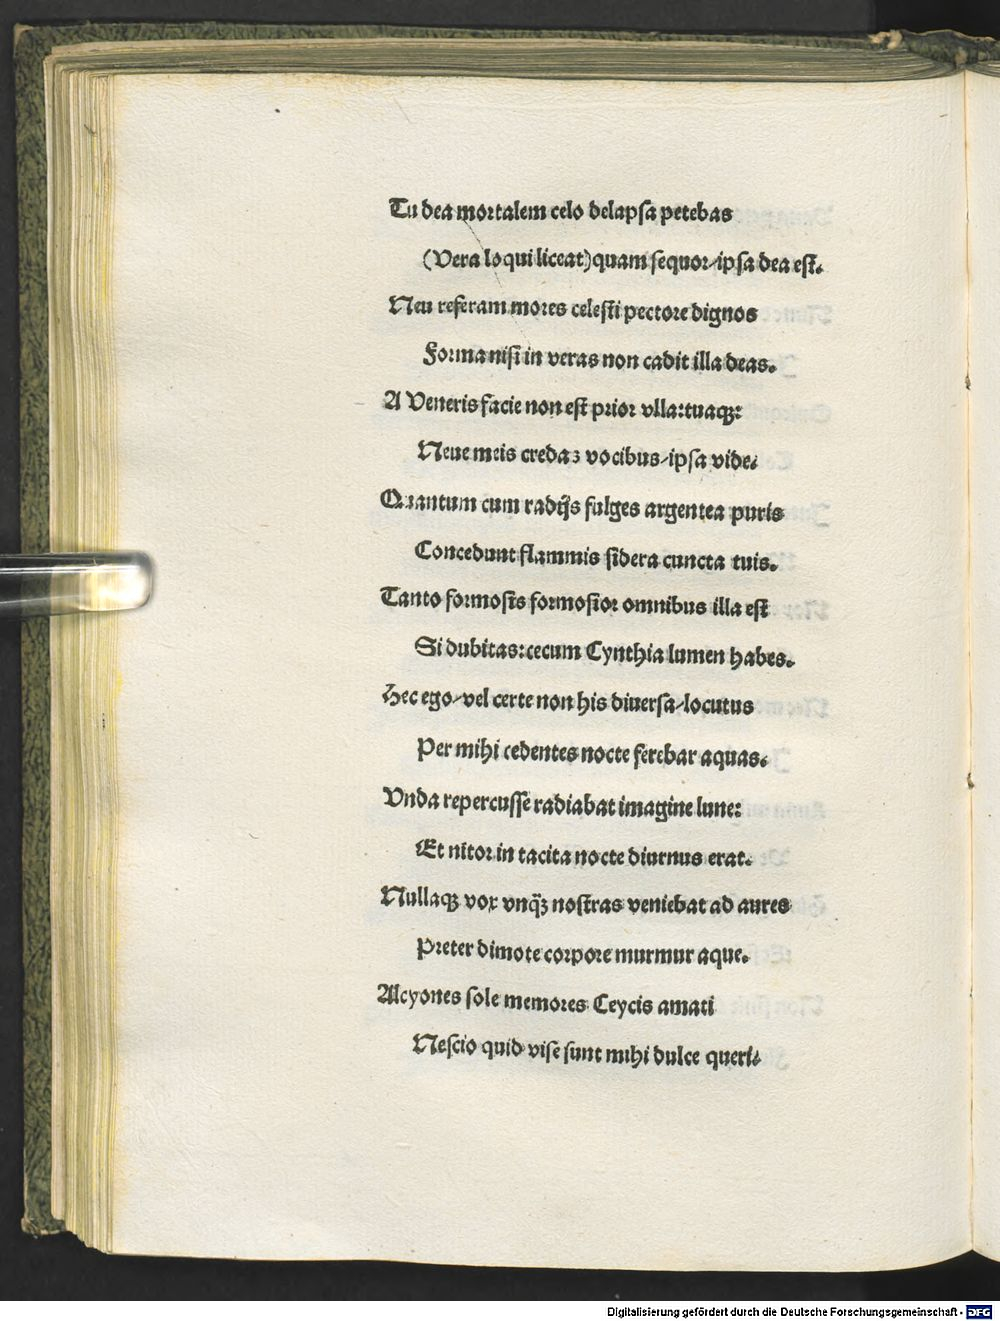 Tu dea mortalem celo delapsa petebas
(Vera loqui liceat) quam sequor/ipsa dea est.
Neu referam mores celesti pectore dignos
Forma nisi in veras non cadit illa deas.
A Veneris facie non est prior vlla:tuaqꝫ:
Neue meis credaꝫ vocibus/ipsa vide.
Quantum cum radijs fulges argentea puris
Concedunt flammis sidera cuncta tuis.
Tanto formosis formosior omnibus illa est
Si dubitas:cecum Cynthia lumen habes.
Hec ego/vel certe non his diuersa/locutus
Per mihi cedentes nocte ferebar aquas.
Vnda repercusse radiabat imagine lune:
Et nitor in tacita nocte diurnus erat.
Nullaqꝫ vox vnq̃ꝫ nostras veniebat ad aures
Preter dimote corpore murmur aque.
Alcyones sole memores Ceycis amati
Nescio quid vise sunt mihi dulce queri.
Digitalisierung gefördert durch die Deutsche Forschungsgemeinschaft - DFG